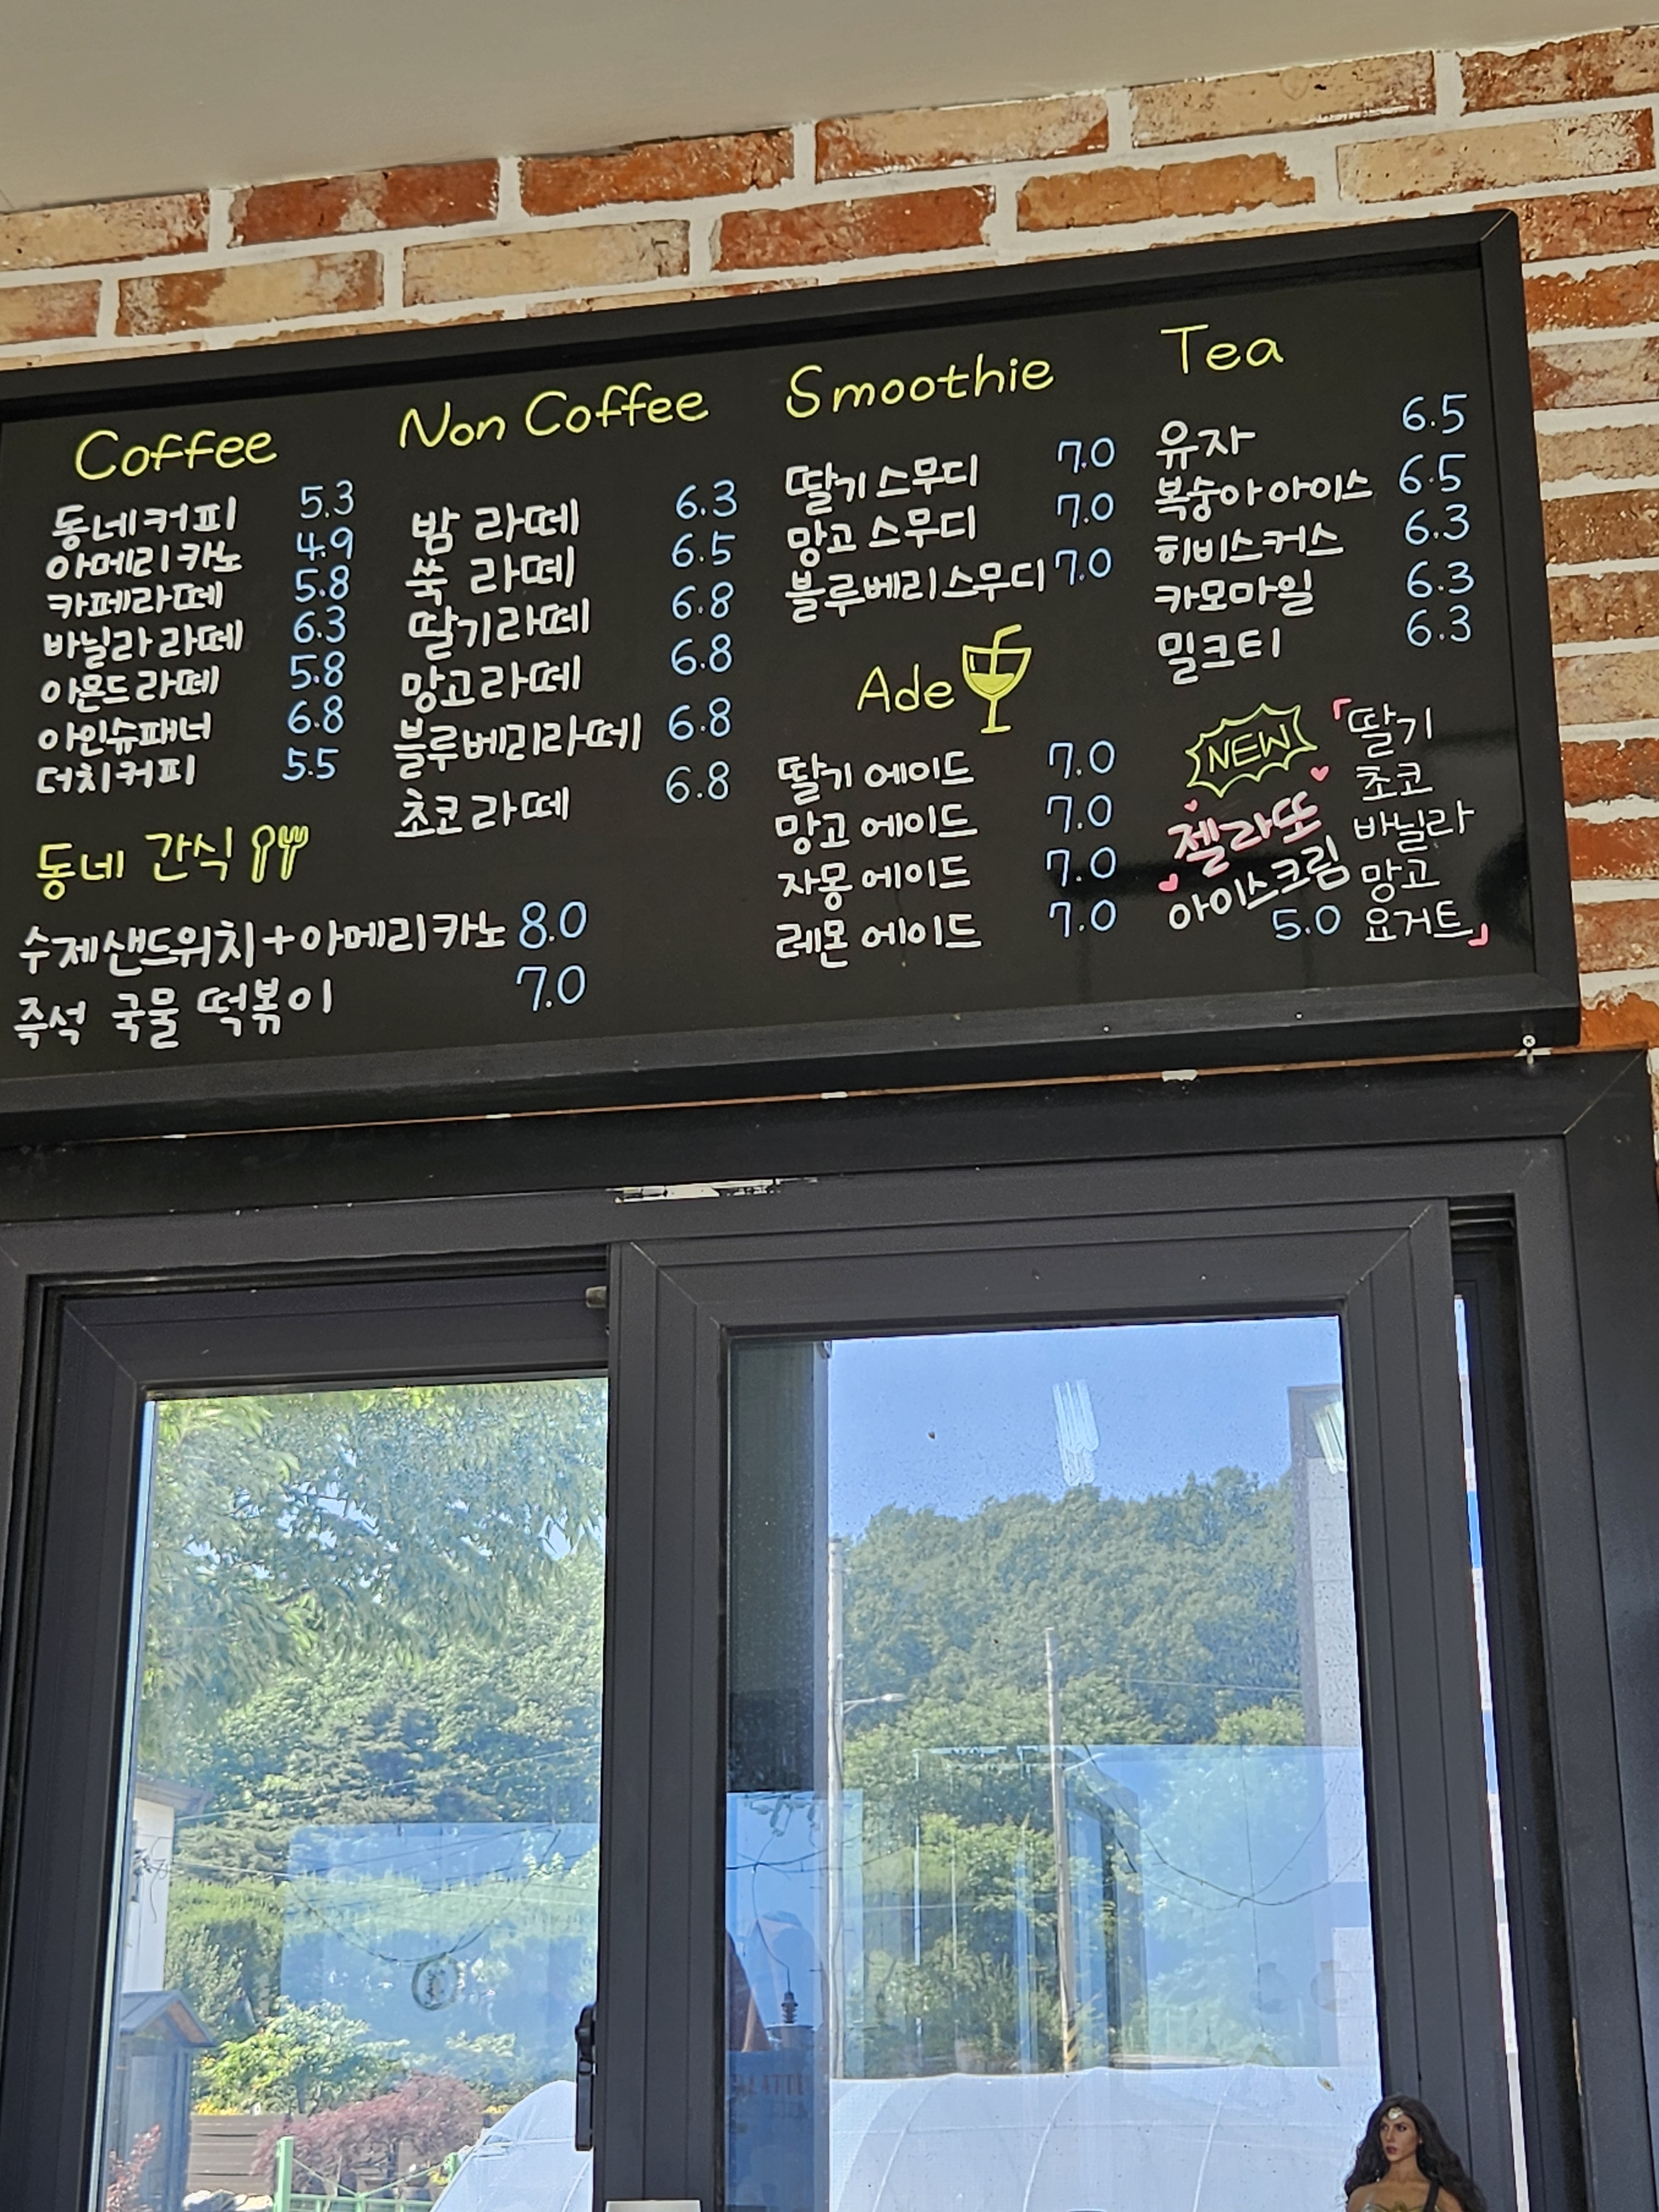 Coffee
동네커피 5.3
아메리카노 4.9
카페라떼 5.8
바닐라 라떼 6.3
아몬드 라떼 5.8
아인슈패너 6.8
더치커피 5.5
동네 간식
수제샌드위치+아메리카노 8.0
즉석 국물 떡볶이 7.0
Non Coffee
밤 라떼 6.3
쑥 라떼 6.5
딸기라떼 6.8
망고라떼 6.8
블루베리라떼 6.8
초코라떼 6.8
Smoothie
딸기 스무디 7.0
망고 스무디 7.0
블루베리스무디 7.0
Ade
딸기 에이드 7.0
망고 에이드 7.0
자몽 에이드 7.0
레몬 에이드 7.0
Tea
유자 6.5
복숭아 아이스 6.5
히비스커스 6.3
카모마일 6.3
밀크티 6.3
NEW
젤라또
아이스크림
5.0
「딸기
초코
바닐라
망고
요거트」